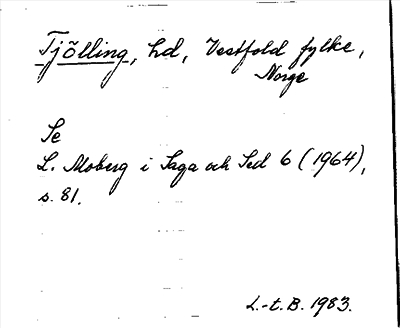 Tjölling, hd, Vestfold fylke,
Norge
Se
L. Moberg i Saga och Sed 6 (1964),
s. 81.
L.-t. B. 1983.